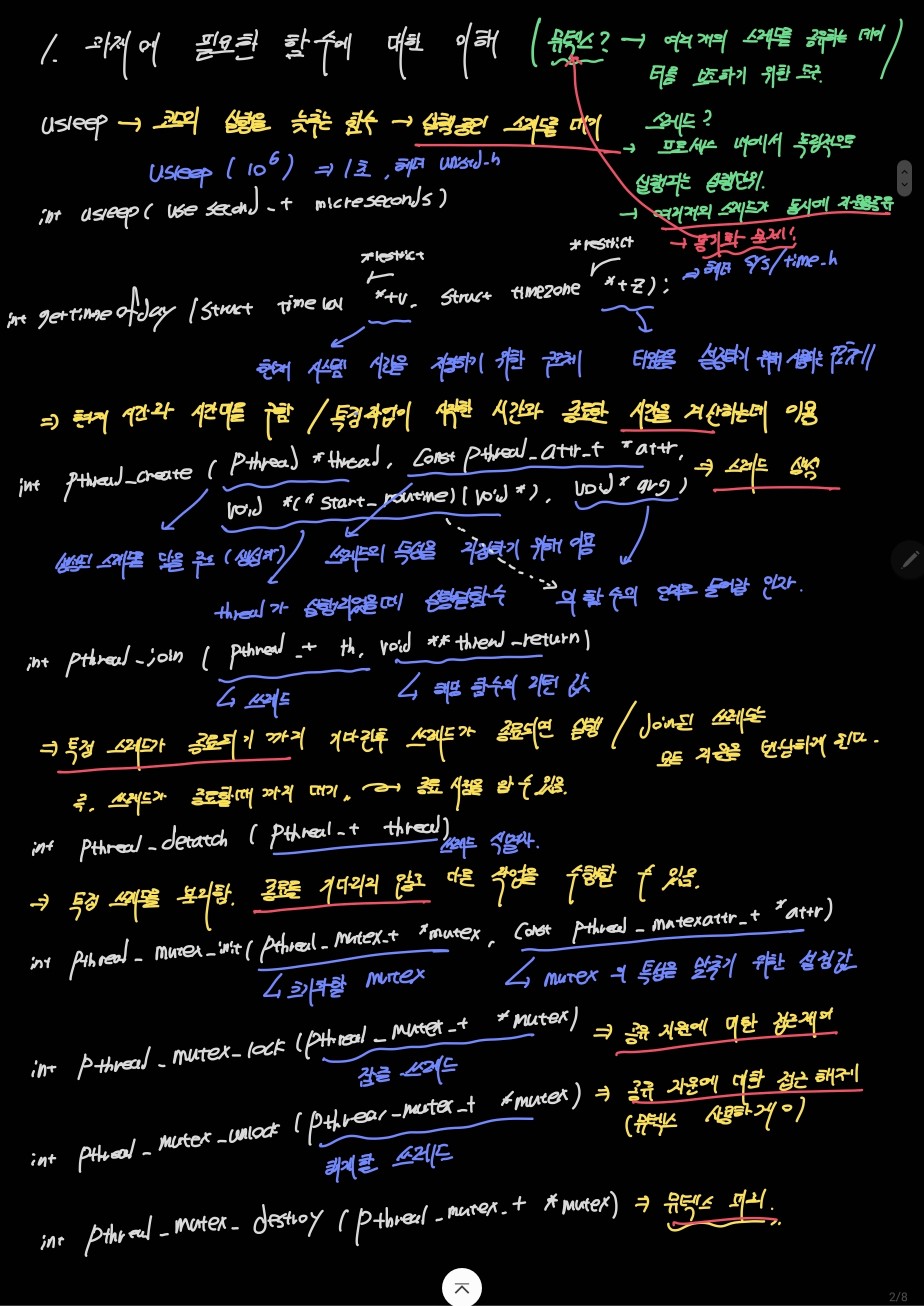 1. 과제에 필요한 함수에 대한 이해 (뮤텍스? → 여러개의 스레드를 공유하는 데이
터를 보호하기 위한 도구.)
usleep → 코드의 실행을 늦추는 함수 → 실행중인 스레드를 대기
스레드?
→ 프로세스 내에서 독립적으로
usleep ( 10⁶ ) ⇒ 1초, 헤더 unistd.h
실행되는 실행단위.
int usleep( use second_t microseconds)
→ 여러개의 스레드가 동시에 자원을공유
→ 동기화 문제!
*restrict *restrict
⇒ 헤더 sys/time.h
int gettimeofday (struct timeval *tv, struct timezone *tz);
현재 시스템 시간을 저장하기 위한 구조체 타임존을 설정하기 위해 사용하는
⇒ 현재 시간과 시간대를 구함 / 특정작업이 시작한 시간과 종료한 시간을 계산하는데 이용
int pthread_create ( pthread *thread, const pthread_attr_t *attr,
void *(*start_routine)(void *), void* arg) ⇒ 스레드 생성
생성된 스레드를 담을 주소 (생성자) 쓰레드의 특성을 지정하기 위해 이용
thread가 실행되었을때 실행될함수 의 함수의 인수로 들어갈 인자.
int pthread_join ( pthread_t th, void **thread_return)
↳ 쓰레드 ↳ 해당 함수의 리턴 값
⇒ 특정 스레드가 종료되기 까지 기다린후 쓰레드가 종료되면 실행 / Join된 쓰레드는
모든 자원을 반납하게 된다.
즉, 쓰레드가 종료할때 까지 대기, → 종료 시점을 알 수 있음.
int pthread_detatch ( pthread_t thread)
쓰레드 식별자.
⇒ 특정 쓰레드를 분리함. 종료를 기다리지 않고 다른 작업을 수행할 수 있음.
int pthread_mutex_init( pthread_mutex_t *mutex, const pthread_mutexattr_t *attr)
↳ 초기화할 mutex ↳ mutex 의 특성을 맞추기 위한 설정값
int pthread_mutex_lock (pthread_mutex_t *mutex) ⇒ 공유 자원에 대한 접근제어
잠글 쓰레드
int pthread_mutex_unlock (pthread_mutex_t *mutex) ⇒ 공유 자원에 대한 접근 해제
해제할 쓰레드
int pthread_mutex_destroy (pthread_mutex_t *mutex) ⇒ 뮤텍스 파괴.
2/8